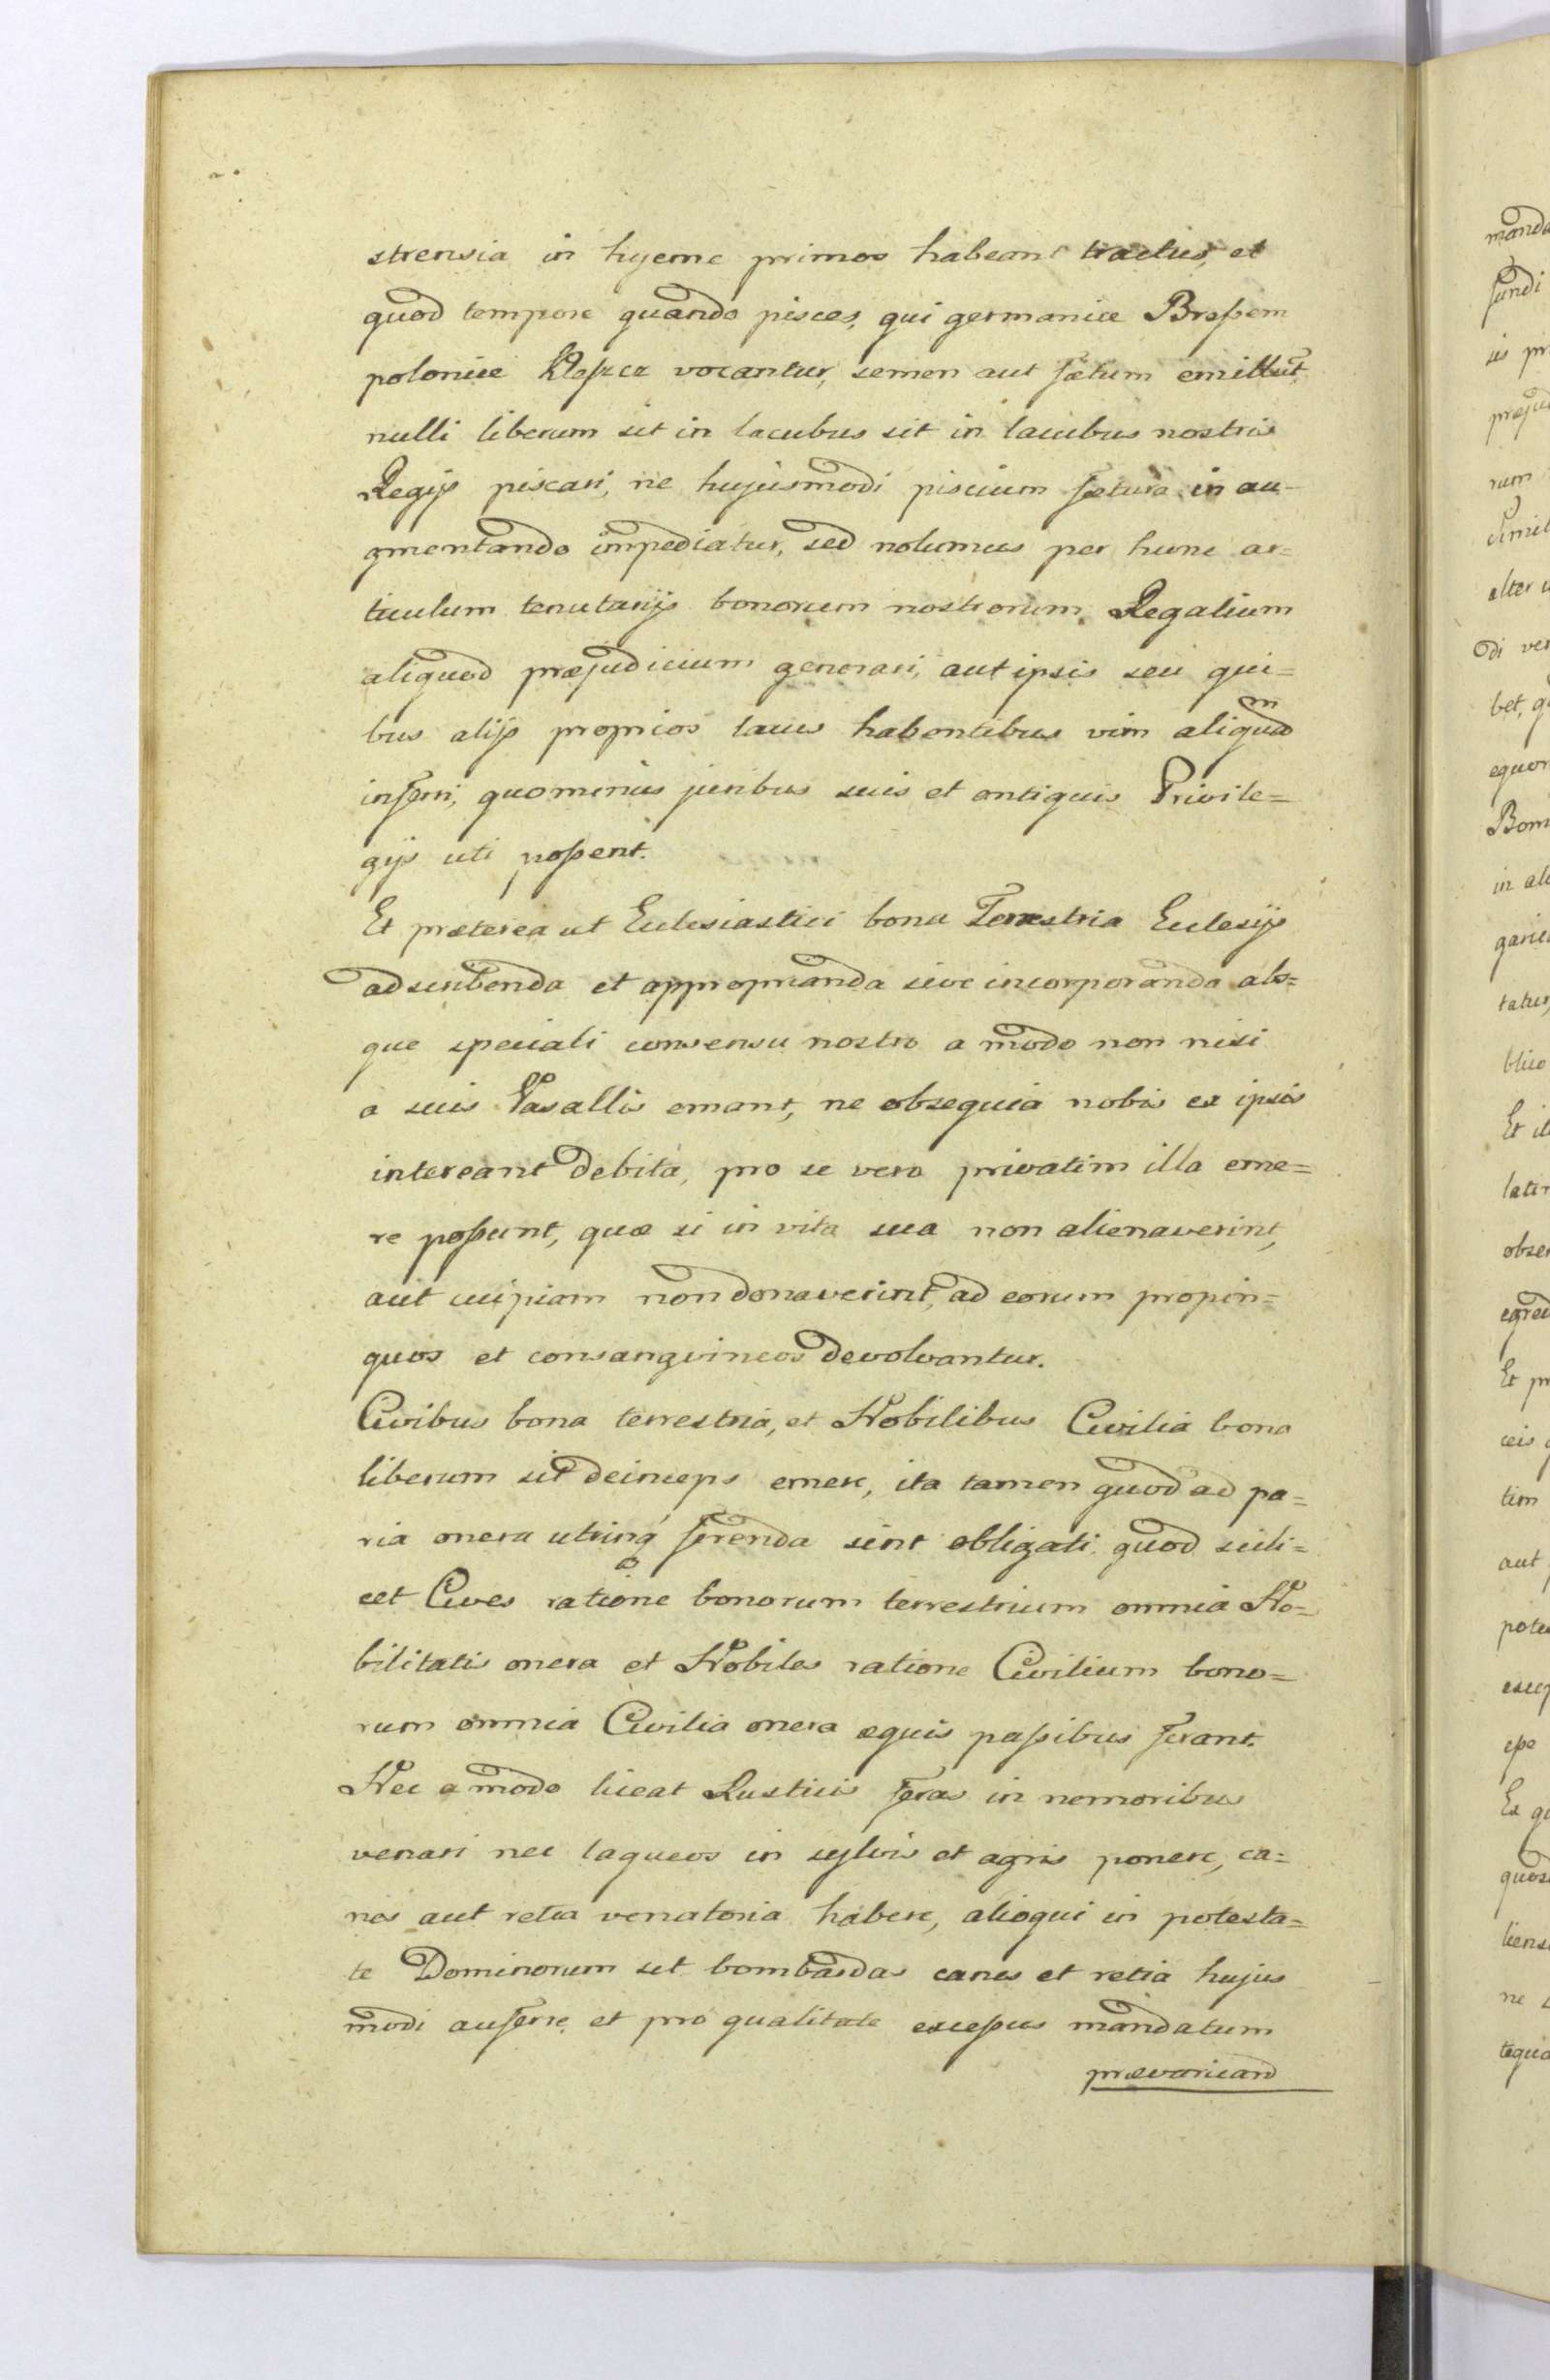 strensia in hyeme primos habeant tractus, et
quod tempore quando pisces, qui germanice Braßem
polonice Kleszcz vocantur, semen aut fœtum emittut
nulli liberum sit in lacubus sit in lacubus nostris
Regijs piscari, ne hujusmodi piscium fœtura in au-
gmentando impediatur, sed nolumus per hunc ar=
ticulum tenutarijs bonorum nostrorum Regalium
aliquod præjudicium generari, aut ipsis seu qui=
bus alijs proprios lacus habentibus vim aliquam
inferri, quominus juribus suis et antiquis Privile=
gijs uti poßent.
Et præterea ut Eclesiastici bona Terrestria Eclesijs
adscribenda et approprianda sive incorporanda abs=
que speciali consensu nostro a modo non nisi
a suis Vasallis emant, ne obsequia nobis ex ipsis
intereant debita, pro se vero privatim illa eme=
re poßunt, quæ si in vita sua non alienaverint,
aut cuipiam non donaverint, ad eorum propin=
quos et consangvineos devolvantur.
Civibus bona terrestria, et Nobilibus Civilia bona
liberum sit deinceps emere, ita tamen quod ad pa=
ria onera utrinq ferenda sint obligati quod scili=
cet Cives ratione bonorum terrestrium omnia No=
bilitatis onera et Nobiles ratione Civilium bono=
rum omnia Civilia onera æquis paßibus ferant.
Nec a modo liceat Rusticis feras in nemoribus
venari nec laqueos in sylvis et agris ponere, ca=
nes aut retia venatoria habere, alioqui in potesta=
te Dominorum sit bombardas canes et retia hujus
modi auferre et pro qualitate exceßus mandatum
prævaricand
manda
fundi
sis pr
præju
rum
simil
alter u
di ver
bet, q
equor
Bom
in al
garic
tatus,
blico
Et it
later
obser
egred
Et pr
ceis
tim
aut
pote
excep
eße
Ex q
quos
liens
ne
tequa